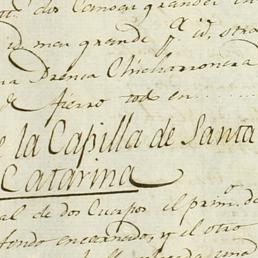 dos Camoer grandes in
id meu grande Y id, otra
na Prensa Chicharronera
de fierro tod en
e la Capilla de Santa
Catarina
al de dos Cuerpos el prim.o de
fondo encarnado, y el otro